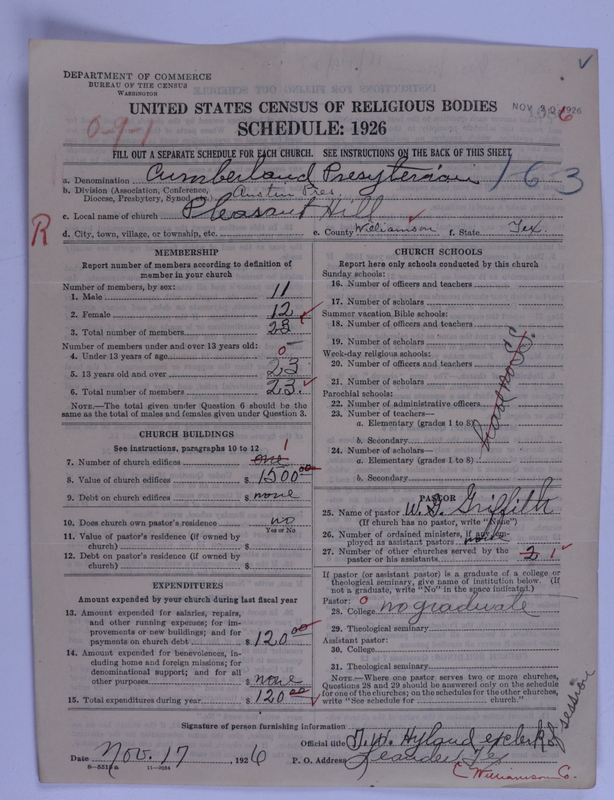 DEPARTMENT OF COMMERCE
BUREAU OF THE CENSUS
WASHINGTON
UNITED STATES CENSUS OF RELIGIOUS BODIES
NOV 30 1926
SCHEDULE: 1926
0-9-1
FILL OUT A SEPARATE SCHEDULE FOR EACH CHURCH. SEE INSTRUCTIONS ON THE BACK OF THIS SHEET
a. Denomination Cumberland Presyterian
1-6-3
b. Division (Association, Conference, Diocese, Presbytery, Synod, etc.) Austin Pres.
c. Local name of church Pleasant Hill
R
d. City, town, village, or township, etc. e. County Williamson f. State Tex.
MEMBERSHIP
Report number of members according to definition of member in your church
Number of members, by sex:
1. Male 11
2. Female 12
3. Total number of members 23
Number of members under and over 13 years old:
4. Under 13 years of age 0
5. 13 years old and over 23
6. Total number of members 23
NOTE.—The total given under Question 6 should be the same as the total of males and females given under Question 3.
CHURCH BUILDINGS
See instructions, paragraphs 10 to 12
7. Number of church edifices one 1
8. Value of church edifices $ 1500 00
9. Debt on church edifices $ none
10. Does church own pastor's residence? no
Yes or No
11. Value of pastor's residence (if owned by church) $
12. Debt on pastor's residence (if owned by church) $
EXPENDITURES
Amount expended by your church during last fiscal year
13. Amount expended for salaries, repairs, and other running expenses; for improvements or new buildings; and for payments on church debt $ 120 00
14. Amount expended for benevolences, including home and foreign missions; for denominational support; and for all other purposes $ none
15. Total expenditures during year $ 120 00
CHURCH SCHOOLS
Report here only schools conducted by this church
Sunday schools:
16. Number of officers and teachers
17. Number of scholars
Summer vacation Bible schools:
18. Number of officers and teachers
19. Number of scholars
Week-day religious schools:
20. Number of officers and teachers
21. Number of scholars
Parochial schools:
22. Number of administrative officers
23. Number of teachers—
a. Elementary (grades 1 to 8)
b. Secondary
24. Number of scholars—
a. Elementary (grades 1 to 8)
b. Secondary
PASTOR
25. Name of pastor W. G. Griffith
(If church has no pastor, write "None")
26. Number of ordained ministers, if any, employed as assistant pastors
27. Number of other churches served by the pastor or his assistants 2 1
If pastor (or assistant pastor) is a graduate of a college or theological seminary, give name of institution below. (If not a graduate, write "No" in the space indicated.)
Pastor: 0
28. College no graduate
29. Theological seminary
Assistant pastor:
30. College
31. Theological seminary
NOTE.—Where one pastor serves two or more churches, Questions 28 and 29 should be answered only on the schedule for one of the churches; on the schedules for the other churches, write "See schedule for church."
Signature of person furnishing information
Official title T. W. Hyland clerk of session
Date Nov. 17, 1926 P. O. Address Leander Tex
Williamson Co.
8-5313a 11-9264